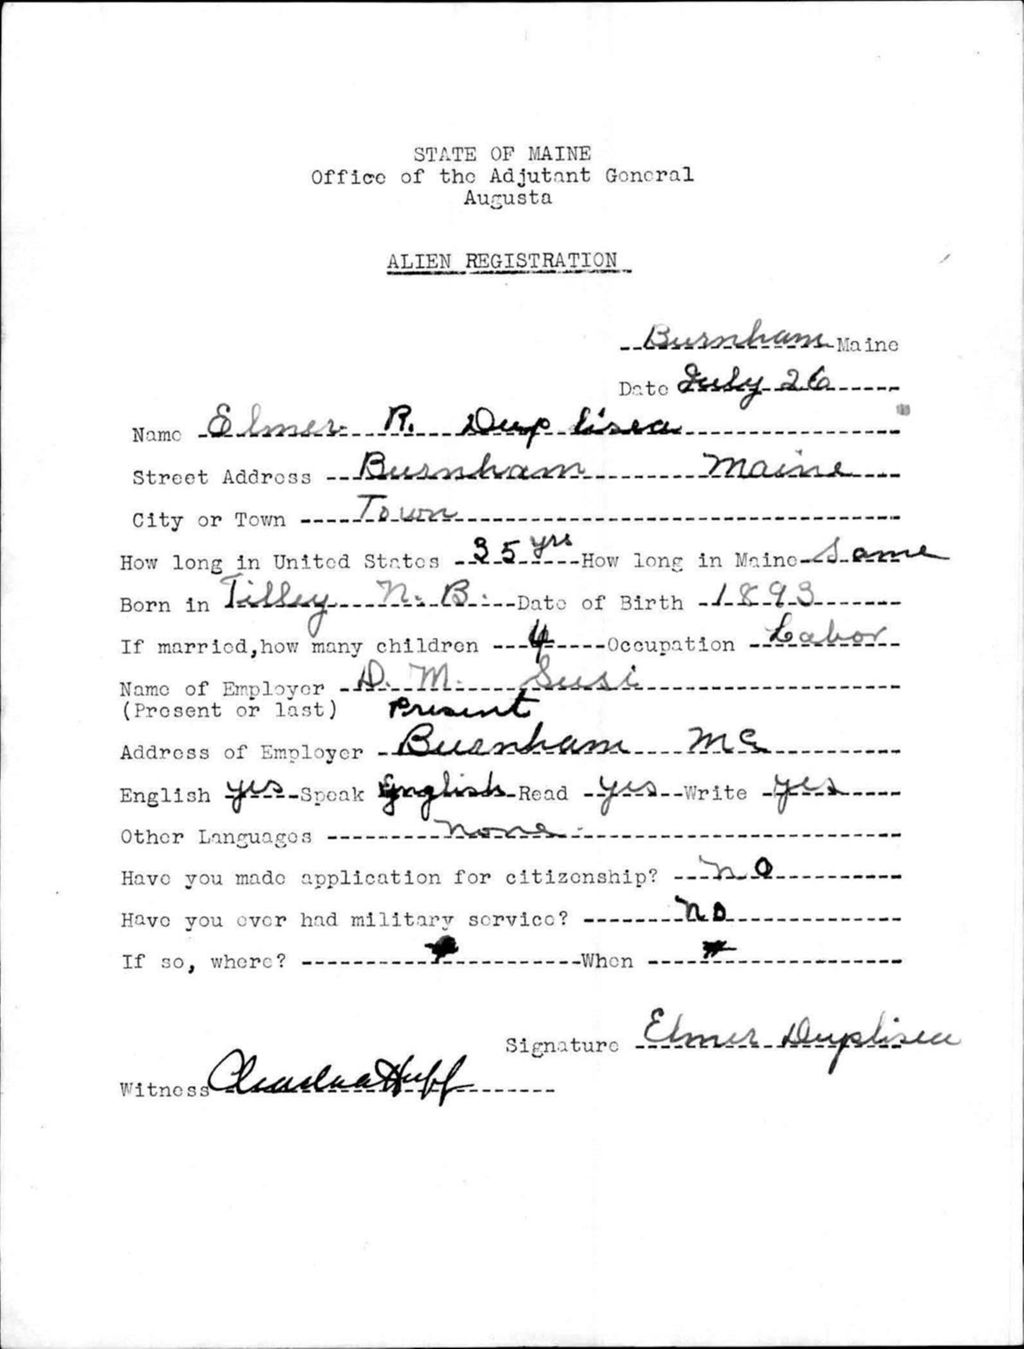 STATE OF MAINE
Office of the Adjutant General
Augusta
ALIEN REGISTRATION
Burnham Maine
Date July 26
Name Elmer R. Duplisea
Street Address Burnham Maine
City or Town Town
How long in United States 35 yrs How long in Maine Same
Born in Tilley N. B. Date of Birth 1893
If married, how many children 4 Occupation Labor
Name of Employer D. M. Susi
(Present or last) Present
Address of Employer Burnham Me
English yes Speak English Read yes Write yes
Other Languages none
Have you made application for citizenship? no
Have you ever had military service? no
If so, where? When
Signature Elmer Duplisea
Witness Huff